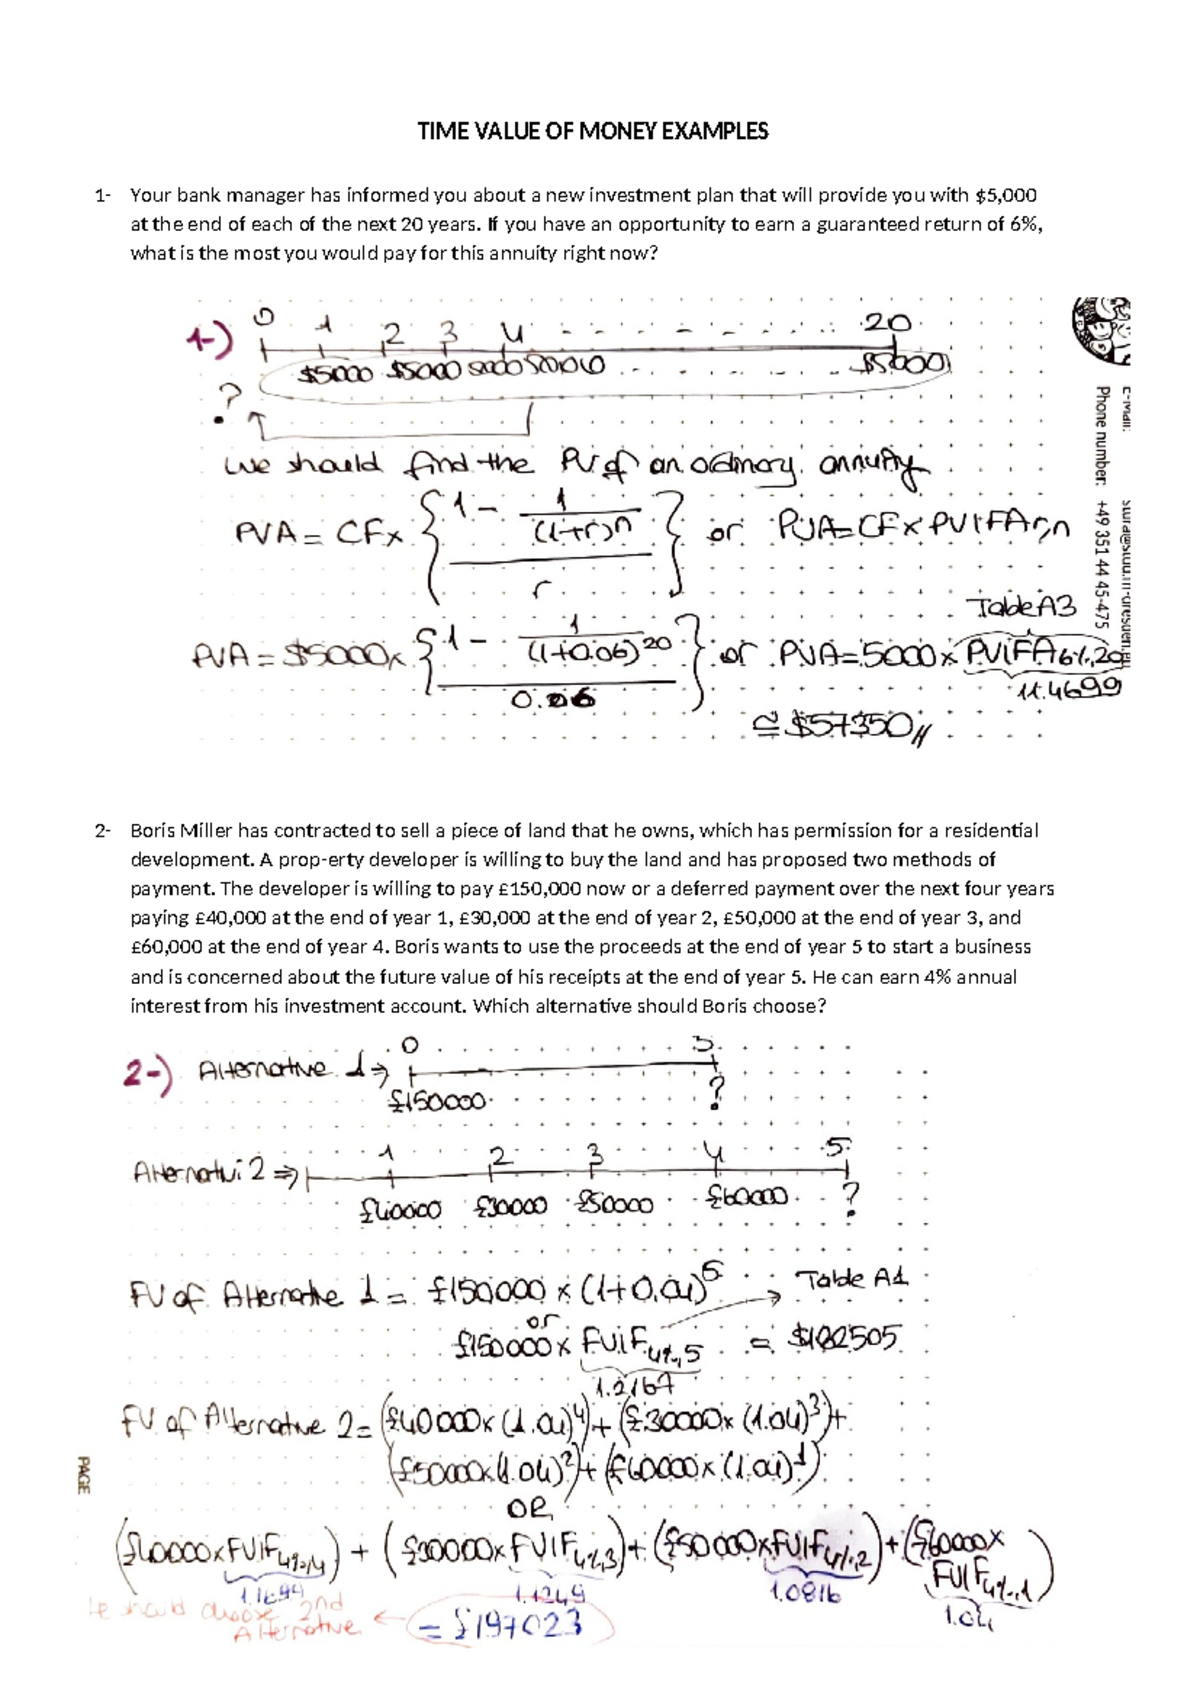 TIME VALUE OF MONEY EXAMPLES
1- Your bank manager has informed you about a new investment plan that will provide you with $5,000
at the end of each of the next 20 years. If you have an opportunity to earn a guaranteed return of 6%,
what is the most you would pay for this annuity right now?
1-) 0 1 2 3 4 - - - - - - 20
$5000 $5000 5000 5000 $5000
?
we should find the PV of an ordinary annuity
PVA = CF x { 1 - 1 / (1+r)^n / r } or PVA=CF x PVIFA r,n
Table A3
PVA = $5000x { 1 - 1 / (1+0.06)^20 / 0.06 } or PVA=5000x PVIFA6%,20
11.4699
≅ $57350//
E-Mail:
Phone number: +49 351 44 45-475
2- Boris Miller has contracted to sell a piece of land that he owns, which has permission for a residential
development. A prop-erty developer is willing to buy the land and has proposed two methods of
payment. The developer is willing to pay £150,000 now or a deferred payment over the next four years
paying £40,000 at the end of year 1, £30,000 at the end of year 2, £50,000 at the end of year 3, and
£60,000 at the end of year 4. Boris wants to use the proceeds at the end of year 5 to start a business
and is concerned about the future value of his receipts at the end of year 5. He can earn 4% annual
interest from his investment account. Which alternative should Boris choose?
2-) Alternative 1 ⇒ 0 5
£150000 ?
1 2 3 4 5
Alternativ 2 ⇒
£40000 £30000 £50000 £60000 ?
FV of Alternative 1 = £150000 x (1+0.04)^5 → Table A1
or
£150000x FVIF4%,5 = $182505
1.2167
FV of Alternative 2= (£40000x (1.04)^4)+ (£30000x (1.04)^3)+
(£50000x(1.04)^2)+ (£60000x(1.04)^1)
OR
(£40000xFVIF4%,4) + (£30000xFVIF4%,3)+ (£50000xFVIF4%,2)+(£60000x
FVIF4%,1)
1.1699 1.1249 1.0816 1.04
He should choose 2nd
Alternative ← = £197023
PAGE